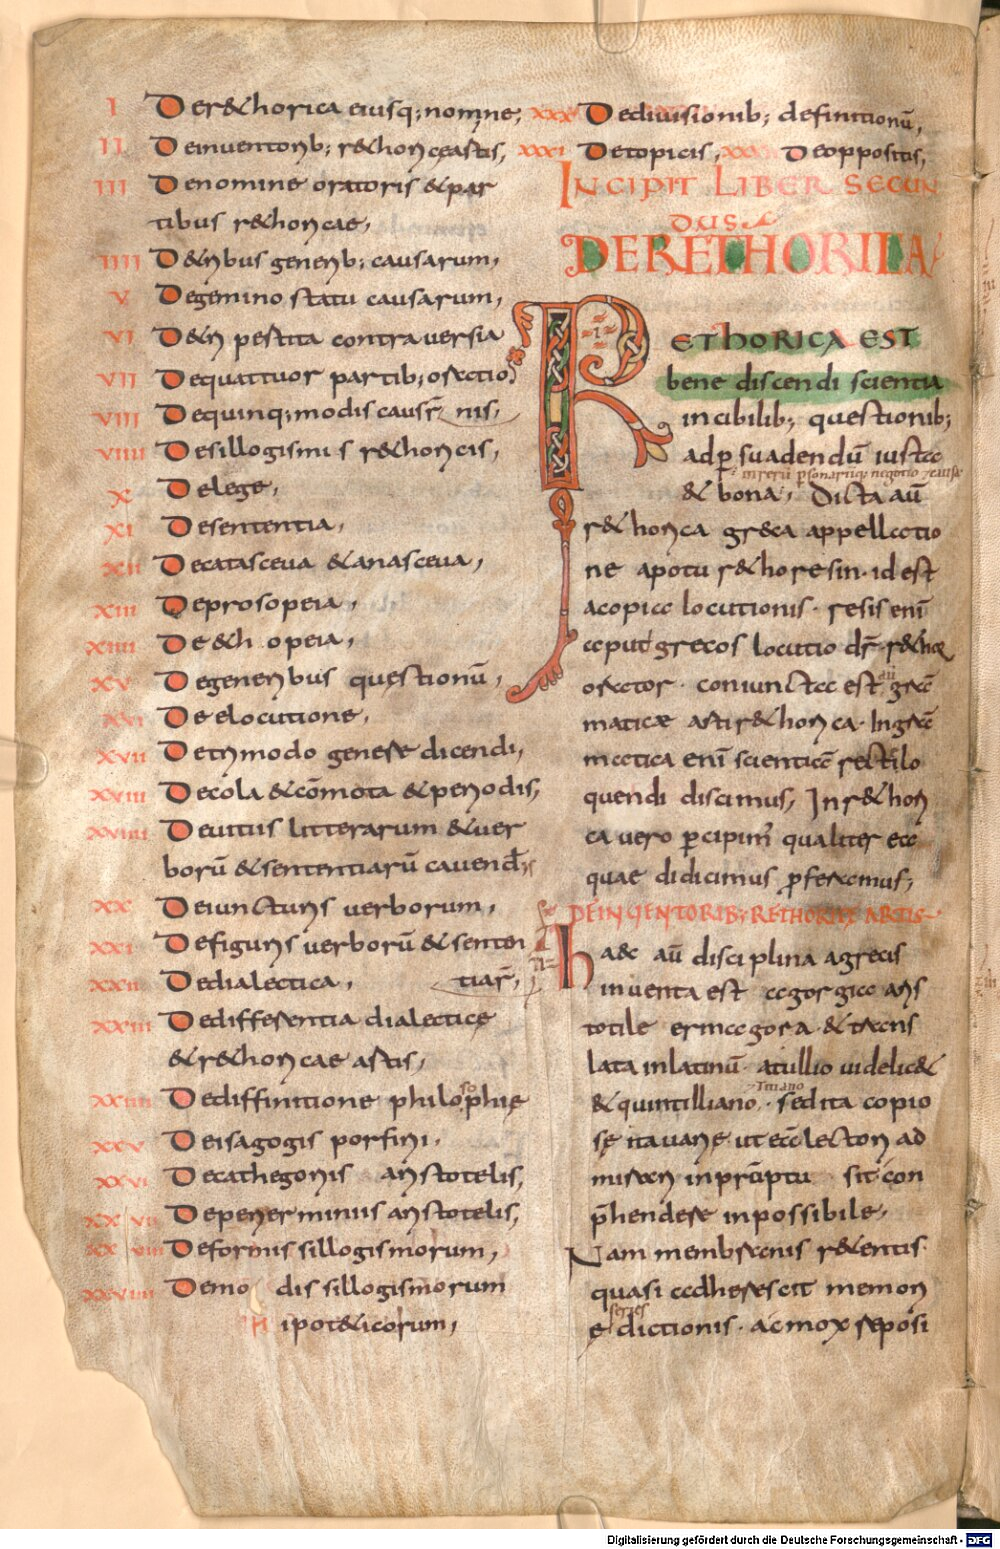 I De r&horica eiusq; nomine;
II De inuentorib; r&horicę artis,
III De nomine oratoris & par
tibus r&horicae,
IIII De tribus generib; causarum,
V De gemino statu causarum,
VI De tripertita contrauersia
VII De quattuor partib; oratio
VIII De quinq; modis causarū nis,
VIIII De sillogismis r&horicis,
X De lege,
XI De sententia,
XII De catasceua & anasceua,
XIII De prosopeia,
XIIII De &hopeia,
XV De generibus questionū,
XVI De elocutione,
XVII De trimodo genere dicendi,
XVIII De cola & cōmata & periodis,
XVIIII De uitiis litterarum & uer
borū & sententiarū cauendis
XX De iuncturis uerborum,
XXI De figuris uerborū & senten
XXII De dialectica, tiarū,
XXIII De differentia dialecticę
& r&horicae artis,
XXIIII De diffinitione philosophię
XXV De isagogis porfirii,
XXVI De cathegoriis aristotelis,
XXVII De perierminiis aristotelis,
XXVIII De formis sillogismorum,
XXVIIII De modis sillogismorum
ipoteticorum,
XXX De diuisionib; definitionū,
XXXI De topicis, XXXII De oppositis,
INCIPIT LIBER SECUN
DUS
DE RETHORICA
RETHORICA EST
bene discendi scientia
in cibilib; questionib;
ad p suadendū iusta
& bona, Dicta aū
r&horica gr&ca appellatio
ne apo tu r&horesin· id est
a copia locutionis· resis enī
aput grecos locutio dr̄· r&hor
orator· coniuncta est grā
maticæ arti r&horica· In grā
matica enī scientiā recte lo
quendi discimus, In r&hori
ca uero pcipimꝰ qualiter ea
quae didicimus pferamus,
DE INUENTORIB; RETHORICE ARTIS
haec aū disciplina a grecis
inuenta est a gorgia aris
totile ermagora· & trans
lata in latinū· a tullio uidelic&
& quintilliano· sed ita copio
Titiano
sę ita uarię ut eā lectori ad
mirari in prūptu sit con
p̄hendere inpossibile,
Nam membranis r&entis
quasi adherescit memori
series
ę dictionis· ac mox reposi